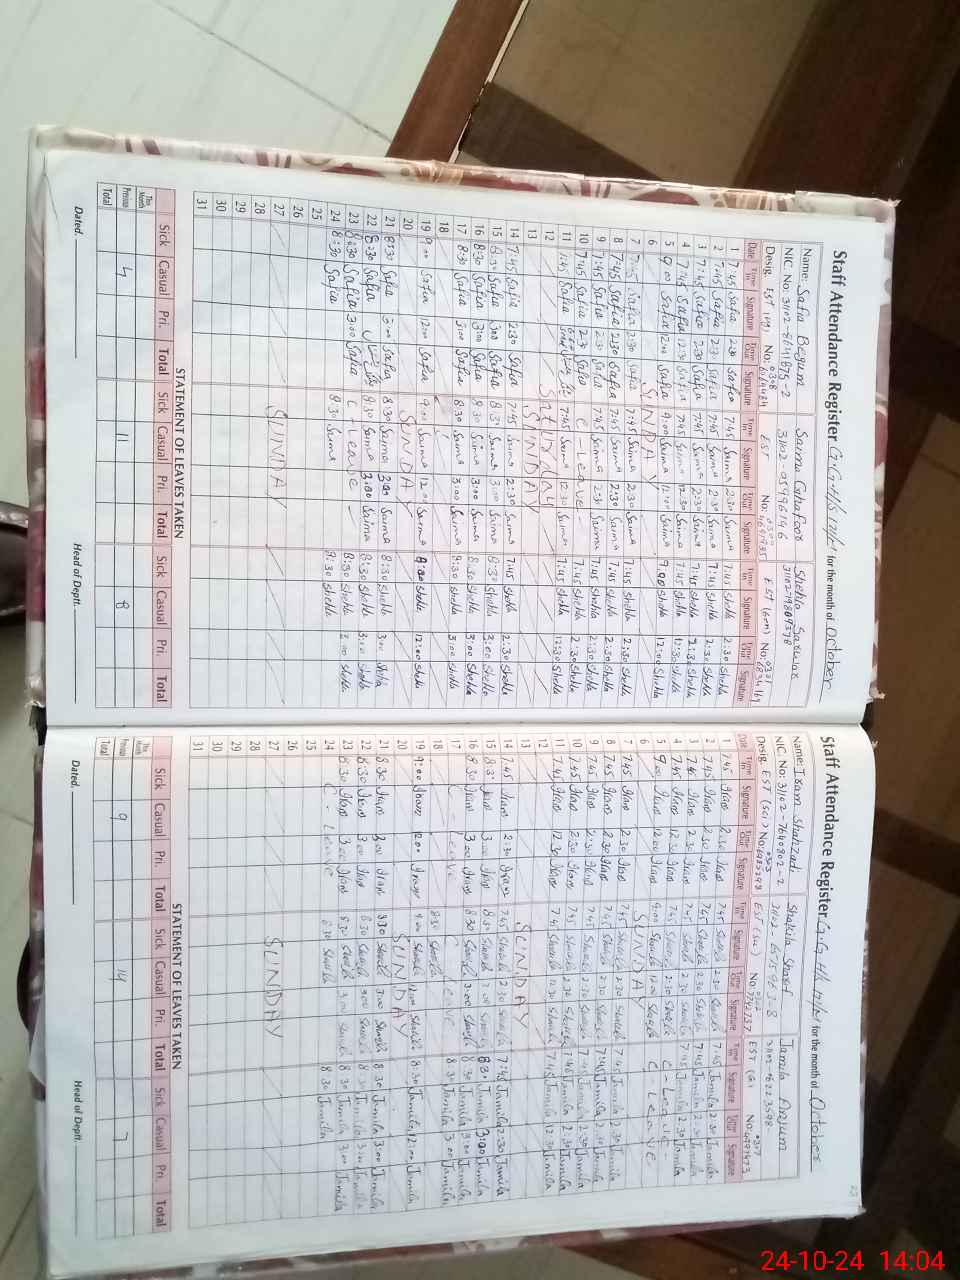 Staff Attendance Register G.G.H/S for the month of October
Name: Safia Begum Saima Ghafoor Shehla Sarwar
NIC. No: 31102-0599614-6
Desig. EST No: EST No: EST No:
Date Time In Signature Time Out Signature Time In Signature Time Out Signature Time In Signature Time Out Signature
1 7:45 Safia 2:30 Safia 7:45 Saima 2:30 Saima 7:45 Shehla 2:30 Shehla
2 7:45 Safia 2:30 Safia 7:45 Saima 2:30 Saima 7:45 Shehla 2:30 Shehla
3 7:45 Safia 2:30 Safia 7:45 Saima 2:30 Saima 7:45 Shehla 2:30 Shehla
4 7:45 Safia 12:30 Safia 7:45 Saima 12:30 Saima 7:45 Shehla 12:30 Shehla
5 9:00 Safia 12:00 Safia 9:00 Saima 12:00 Saima 9:00 Shehla 12:00 Shehla
6 SUNDAY
7 7:45 Safia 2:30 Safia 7:45 Saima 2:30 Saima 7:45 Shehla 2:30 Shehla
8 7:45 Safia 2:30 Safia 7:45 Saima 2:30 Saima 7:45 Shehla 2:30 Shehla
9 7:45 Safia 2:30 Safia 7:45 Saima 2:30 Saima 7:45 Shehla 2:30 Shehla
10 7:45 Safia 2:30 Safia C - Leave 7:45 Shehla 2:30 Shehla
11 7:45 Safia 7:45 Saima 12:30 Saima 7:45 Shehla 12:30 Shehla
12 Saturday
13 SUNDAY
14 7:45 Safia 2:30 Safia 7:45 Saima 2:30 Saima 7:45 Shehla 2:30 Shehla
15 8:30 Safia 3:00 Safia 8:30 Saima 3:00 Saima 8:30 Shehla 3:00 Shehla
16 8:30 Safia 3:00 Safia 8:30 Saima 3:00 Saima 8:30 Shehla 3:00 Shehla
17 8:30 Safia 3:00 Safia 8:30 Saima 3:00 Saima 8:30 Shehla 3:00 Shehla
18
19 9:00 Safia 12:00 Safia 9:00 Saima 12:00 Saima 12:00 Shehla
20 SUNDAY
21 8:30 Safia 3:00 Safia 8:30 Saima 3:00 Saima 8:30 Shehla 3:00 Shehla
22 8:30 Safia 8:30 Saima 3:00 Saima 8:30 Shehla 3:00 Shehla
23 8:30 Safia 3:00 Safia C - Leave 8:30 Shehla 3:00 Shehla
24 8:30 Safia 8:30 Saima 8:30 Shehla
25
26
27 SUNDAY
28
29
30
31
STATEMENT OF LEAVES TAKEN
Sick Casual Pri. Total Sick Casual Pri. Total Sick Casual Pri. Total
This Month
Previous 4 11 8
Total
Dated. Head of Deptt.
Staff Attendance Register G.G.H/S for the month of October
Name: Iram Shahzadi Shakila Sharif Jamila Anjum
NIC. No: 31102-7640802-2
Desig. EST (Sci) No: EST No: EST No:
Date Time In Signature Time Out Signature Time In Signature Time Out Signature Time In Signature Time Out Signature
1 7:45 Iram 2:30 Iram 7:45 Shakila 2:30 Shakila 7:45 Jamila 2:30 Jamila
2 7:45 Iram 2:30 Iram 7:45 Shakila 2:30 Shakila 7:45 Jamila 2:30 Jamila
3 7:45 Iram 2:30 Iram 7:45 Shakila 2:30 Shakila 7:45 Jamila 2:30 Jamila
4 7:45 Iram 12:30 Iram 7:45 Shakila C - Leave
5 9:00 Iram 12:00 Iram 9:00 Shakila 12:00 Shakila C - Leave
6 SUNDAY
7 7:45 Iram 2:30 Iram 7:45 Shakila 2:30 Shakila 7:45 Jamila 2:30 Jamila
8 7:45 Iram 2:30 Iram 7:45 Shakila 2:30 Shakila 7:45 Jamila 2:30 Jamila
9 7:45 Iram 2:30 Iram 7:45 Shakila 2:30 Shakila 7:45 Jamila 2:30 Jamila
10 7:45 Iram 2:30 Iram 7:45 Shakila 2:30 Shakila 7:45 Jamila 2:30 Jamila
11 7:45 Iram 12:30 Iram 7:45 Shakila 12:30 Shakila 7:45 Jamila 12:30 Jamila
12
13 SUNDAY
14 7:45 Iram 2:30 Iram 7:45 Shakila 2:30 Shakila 7:45 Jamila 2:30 Jamila
15 8:30 Iram 3:00 Iram 8:30 Shakila 3:00 8:30 Jamila 3:00 Jamila
16 8:30 Iram 3:00 Iram 8:30 Shakila 3:00 Shakila 8:30 Jamila 3:00 Jamila
17 C - Leave C Leave 8:30 Jamila 3:00 Jamila
18 8:30 Shakila
19 9:00 Iram 12:00 Iram 9:00 Shakila 12:00 Shakila 8:30 Jamila 12:00 Jamila
20 SUNDAY
21 8:30 Iram 3:00 Iram 8:30 Shakila 3:00 Shakila 8:30 Jamila 3:00 Jamila
22 8:30 Iram 3:00 Iram 8:30 Shakila 3:00 Shakila 8:30 Jamila 3:00 Jamila
23 8:30 Iram 3:00 Iram 8:30 Shakila 3:00 Shakila 8:30 Jamila 3:00 Jamila
24 C - Leave 8:30 Shakila 8:30 Jamila
25
26
27 SUNDAY
28
29
30
31
STATEMENT OF LEAVES TAKEN
Sick Casual Pri. Total Sick Casual Pri. Total Sick Casual Pri. Total
This Month
Previous 9 14 7
Total
Dated. Head of Deptt.
24-10-24 14:04